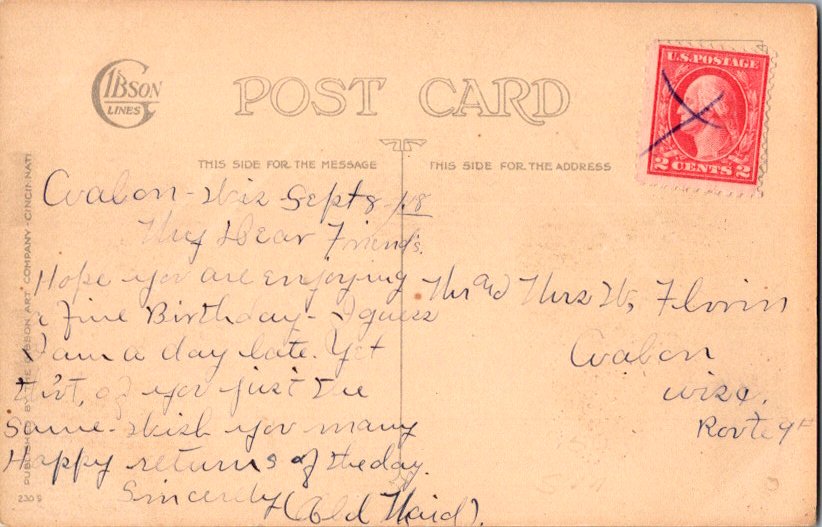 GIBSON
LINES
POST CARD
U.S. POSTAGE
2 CENTS 2
THIS SIDE FOR THE MESSAGE
THIS SIDE FOR THE ADDRESS
Avalon - Wis - Sept 8 - 18
My Dear Friend's.
Hope you are enjoying
a fine Birthday - I guess
I am a day late. Yet
of you just the
Same - Wish you many
Happy returns of the day.
Sincerely (Old Maid).
Mr and Mrs W, Florin
Avalon
Wisc.
Route 9
PUBLISHED BY THE GIBSON ART COMPANY CINCINNATI
230 S